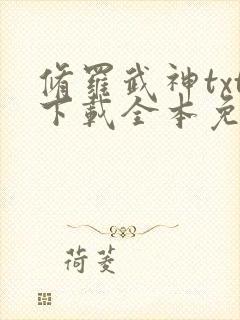 修羅武神txt
下載全本免
荷菱